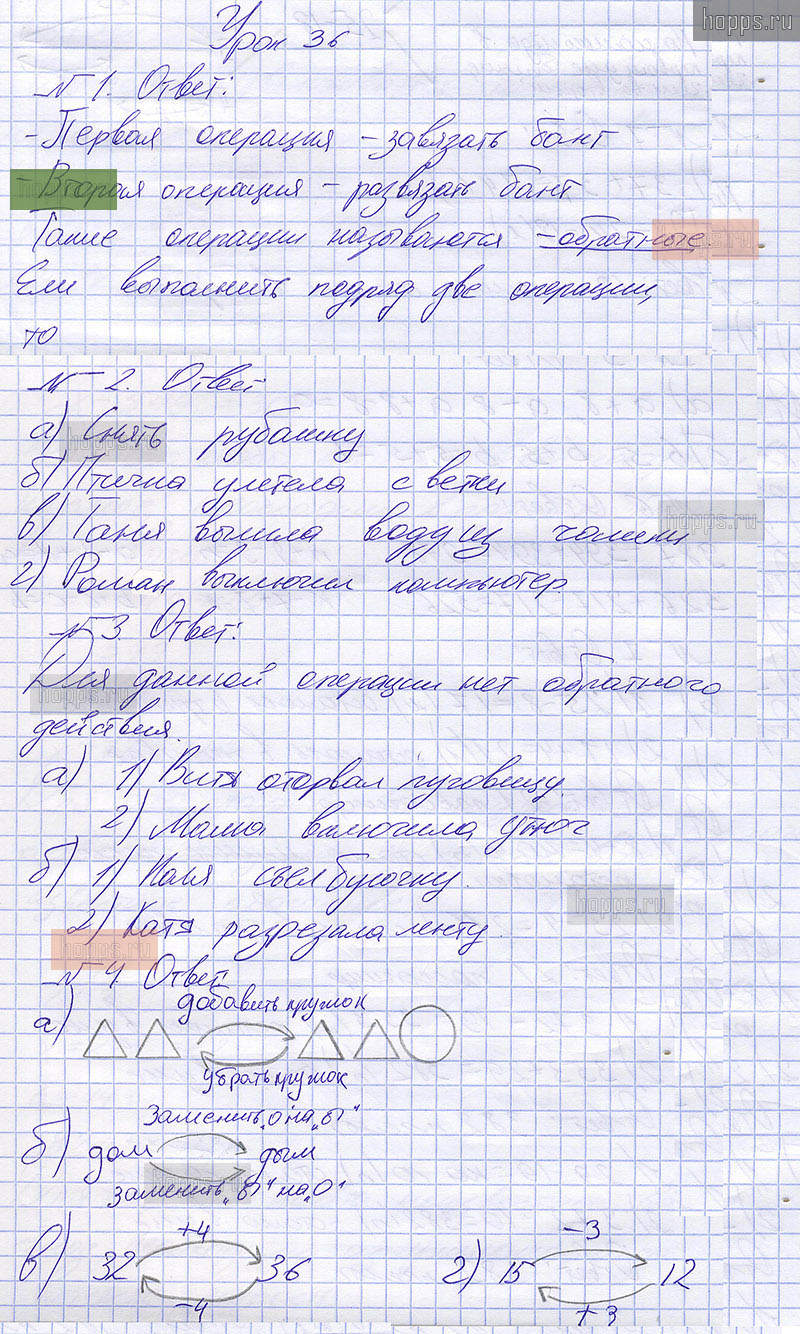 hopps.ru
Урок 36
№ 1. Ответ:
- Первая операция - завязать бант
- Вторая операция - развязать бант
Такие операции называются - обратные.
Если выполнить подряд две операции,
то
№ 2. Ответ
а) Снять рубашку
б) Птичка улетела с ветки
в) Таня вылила воду из чашки
г) Роман выключил компьютер
№ 3. Ответ:
Для данной операции нет обратного
действия.
а) 1) Витя оторвал пуговицу.
2) Мама включила утюг
б) 1) Коля съел булочку.
2) Катя разрезала ленту.
№ 4. Ответ
добавить кружок
а)
убрать кружок
Заменить "о" на "ы"
б) дом дым
заменить "ы" на "о"
+4 -3
в) 32 36 г) 15 12
-4 +3